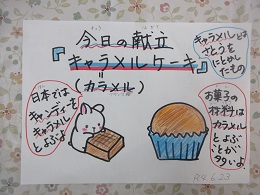 今日の献立
『キャラメルケーキ』
(ガラメル)
キャラメルとは
さとうを
にとかした
もの
日本では
キャンディを
キャラメル
とよぶよ
お菓子の
材料は
カラメル
とよぶ
ことが
多いよ。
R4.6.23